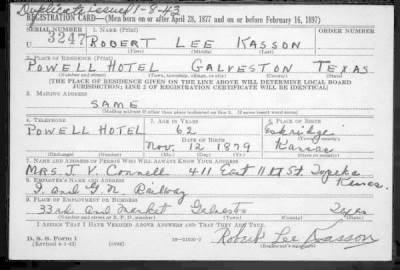 Duplicate issued 1-8-43
REGISTRATION CARD—(Men born on or after April 28, 1877 and on or before February 16, 1897)
SERIAL NUMBER 1. NAME (Print) ORDER NUMBER
U 3247 ROBERT LEE KASSON
(First) (Middle) (Last)
2. PLACE OF RESIDENCE (Print)
POWELL HOTEL GALVESTON TEXAS
(Number and street) (Town, township, village, or city) (County) (State)
[THE PLACE OF RESIDENCE GIVEN ON THE LINE ABOVE WILL DETERMINE LOCAL BOARD
JURISDICTION; LINE 2 OF REGISTRATION CERTIFICATE WILL BE IDENTICAL]
3. MAILING ADDRESS
SAME
[Mailing address if other than place indicated on line 2. If same insert word same]
4. TELEPHONE 5. AGE IN YEARS 6. PLACE OF BIRTH
POWELL HOTEL 62 Oakridge
DATE OF BIRTH (Town or county)
Nov. 12 1879 Kansas
(Exchange) (Number) (Mo.) (Day) (Yr.) (State or country)
7. NAME AND ADDRESS OF PERSON WHO WILL ALWAYS KNOW YOUR ADDRESS
MRS. J. V. Connell 411 East 11th St. Topeka Kans.
8. EMPLOYER'S NAME AND ADDRESS
I. and G. N. Railway
9. PLACE OF EMPLOYMENT OR BUSINESS
33rd and Market Galveston Texas
(Number and street or R. F. D. number) (Town) (County) (State)
I AFFIRM THAT I HAVE VERIFIED ABOVE ANSWERS AND THAT THEY ARE TRUE.
D. S. S. Form 1 Robert Lee Kasson
(Revised 4-1-42) (over) (Registrant's signature)